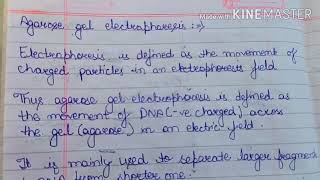 Made with KINEMASTER
Agarose gel electrophoresis :→
Electrophoresis is defined as the movement of
charged particles in an electrophoresis field
Thus agarose gel electrophoresis is defined as
the movement of DNA (-ve charged) across
the gel (agarose) in an electric field.
It is mainly used to separate larger fragment
from shorter one.